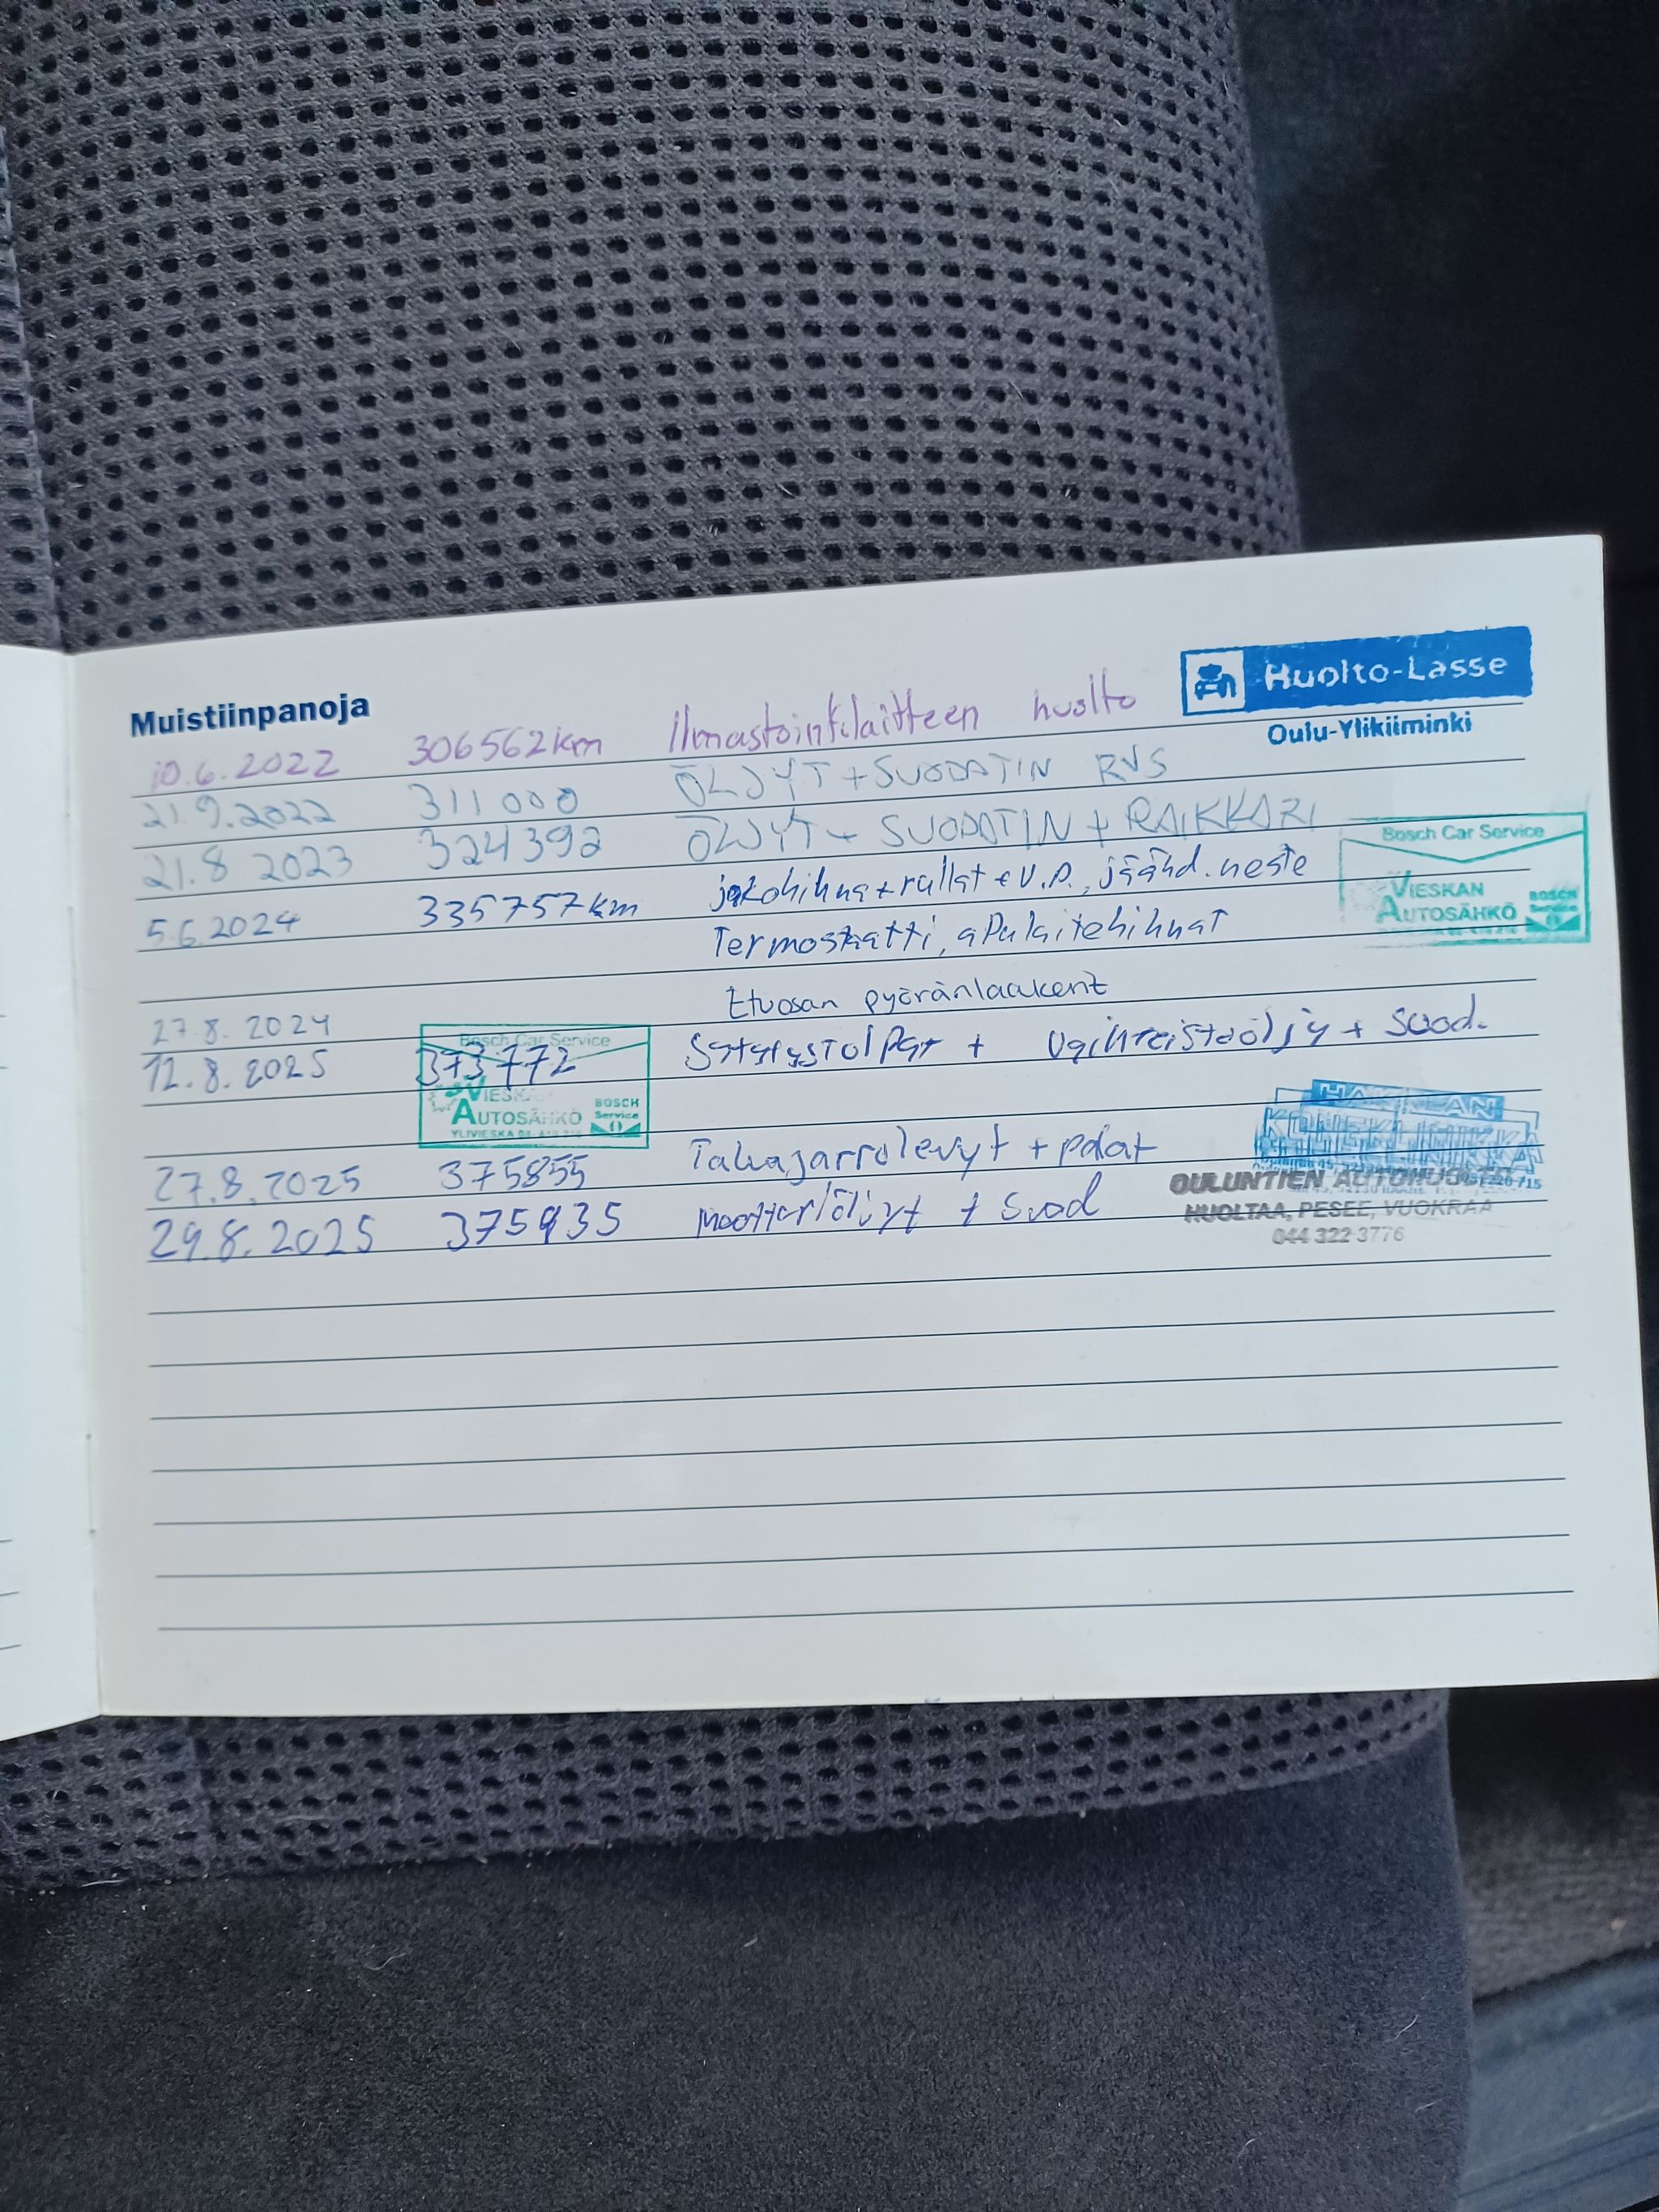 Muistiinpanoja
Huolto-Lasse
Oulu-Ylikiiminki
10.6.2022 306562km Ilmastointilaitteen huolto
21.9.2022 311 000 ÖLJYT + SUODATIN RVS
21.8 2023 324392 ÖLJYT + SUODATIN + RAIKKARI
Bosch Car Service
VIESKAN
AUTOSÄHKÖ
BOSCH
Service
5.6.2024 335757km jakohihna + rullat + V.P., jäähd. neste
Termostaatti, apulaitehihnat
27.8. 2024 Etuosan pyöränlaakerit
12.8. 2025 373772 Sytytystolpat + Vaihteistoöljy + Suod.
Bosch Car Service
AUTOSÄHKÖ
BOSCH
Service
27.8.2025 375855 Takajarrulevyt + palat
OULUNTIEN
HUOLTAA, PESEE, VUOKRAA
044 322 3776
29.8. 2025 375935 Moottoriöljyt + Suod